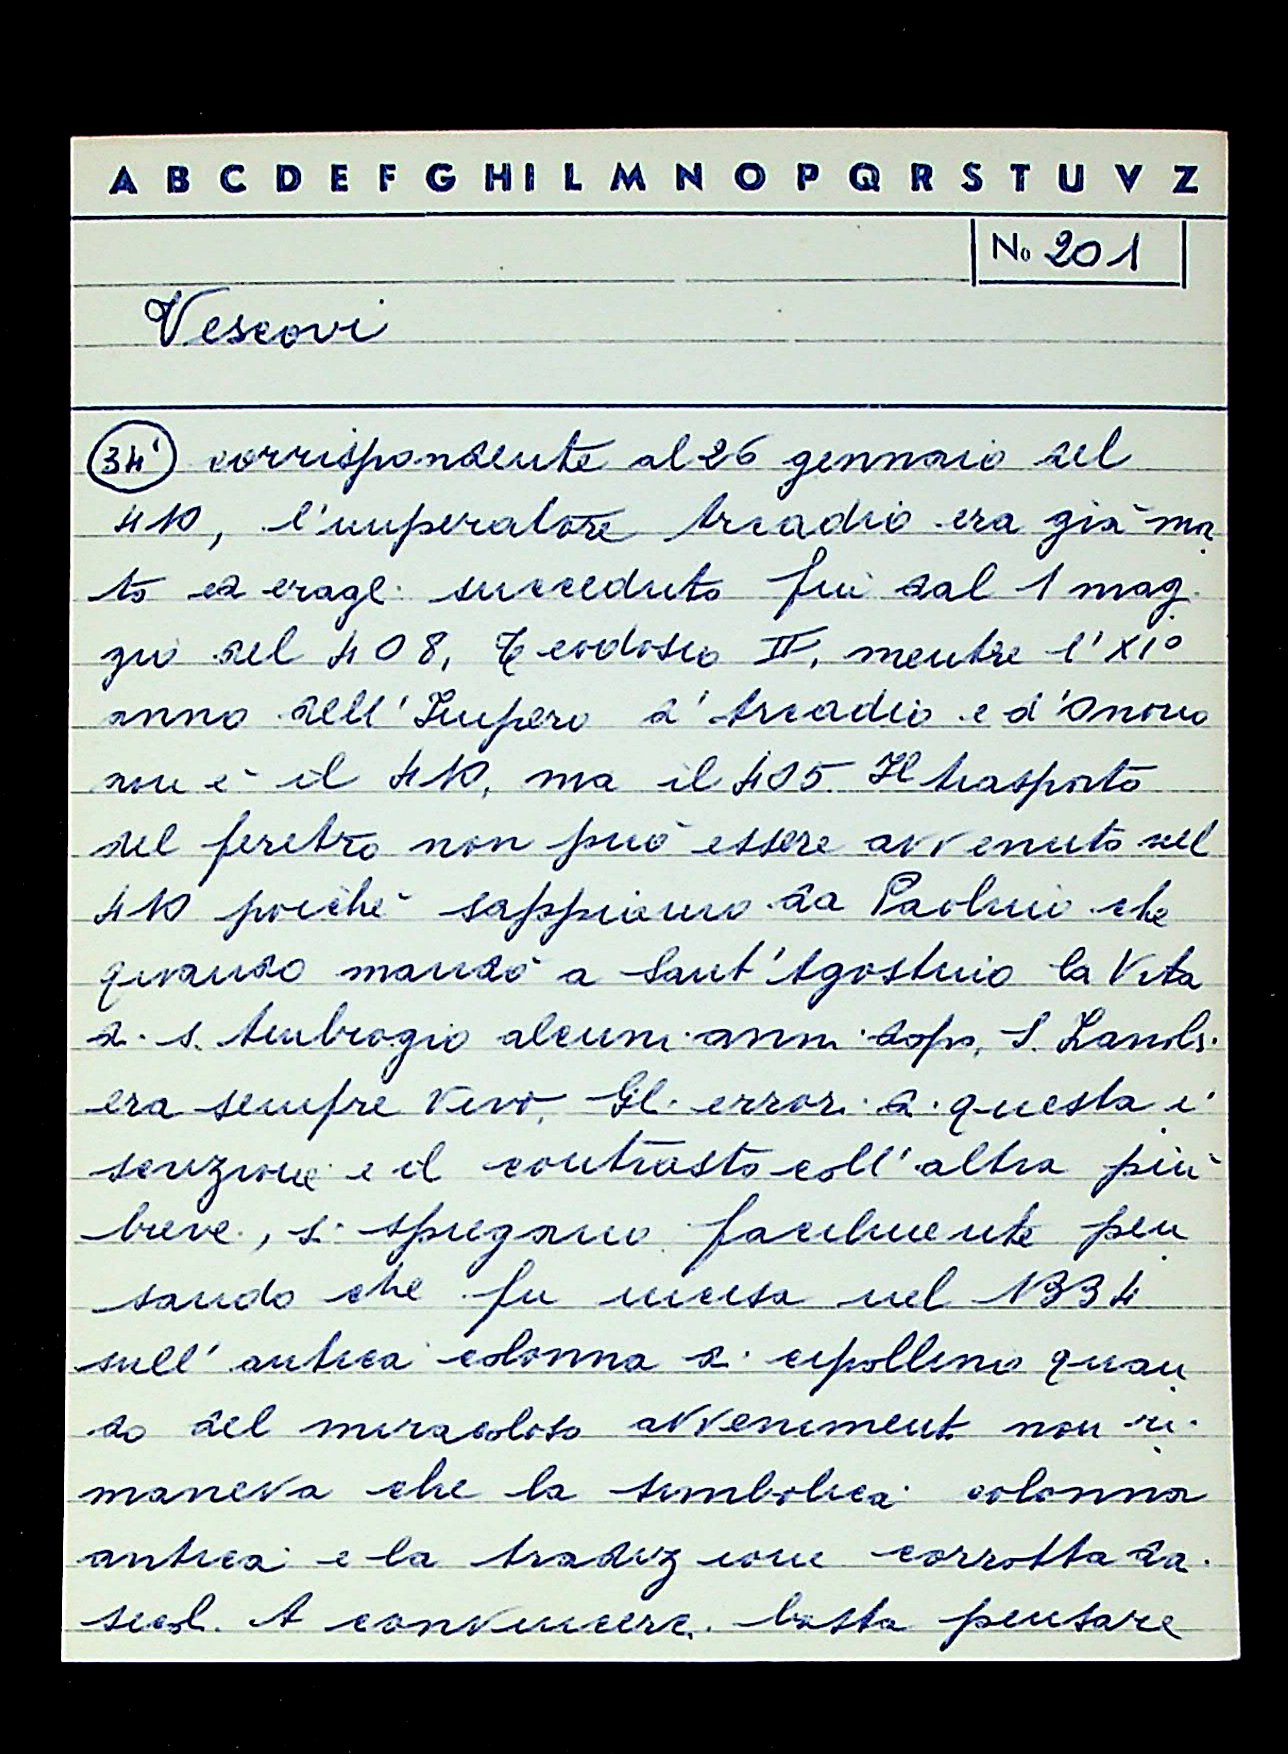 A B C D E F G H I L M N O P Q R S T U V Z
No 201
Vescovi
34' corrispondente al 26 gennaio del
410, l'imperatore Arcadio era già mor
to ed eragli succeduto fin dal 1 mag
gio del 408, Teodosio II, mentre l'XI°
anno dell'Impero d'Arcadio e d'Onorio
non è il 410, ma il 405. Il trasporto
del feretro non può essere avvenuto nel
410 poichè sappiamo da Paolino che
quando mandò a Sant'Agostino la Vita
di S. Ambrogio alcuni anni dopo, S. Zanobi
era sempre vivo. Gli errori di questa i
scrizione e il contrasto coll'altra più
breve, si spiegano facilmente pen
sando che fu incisa nel 1334
sull'antica colonna di cipollino quan
do del miracoloso avvenimento non ri
maneva che la simbolica colonna
antica e la tradizione corrotta dai
secoli. A convincerci basta pensare